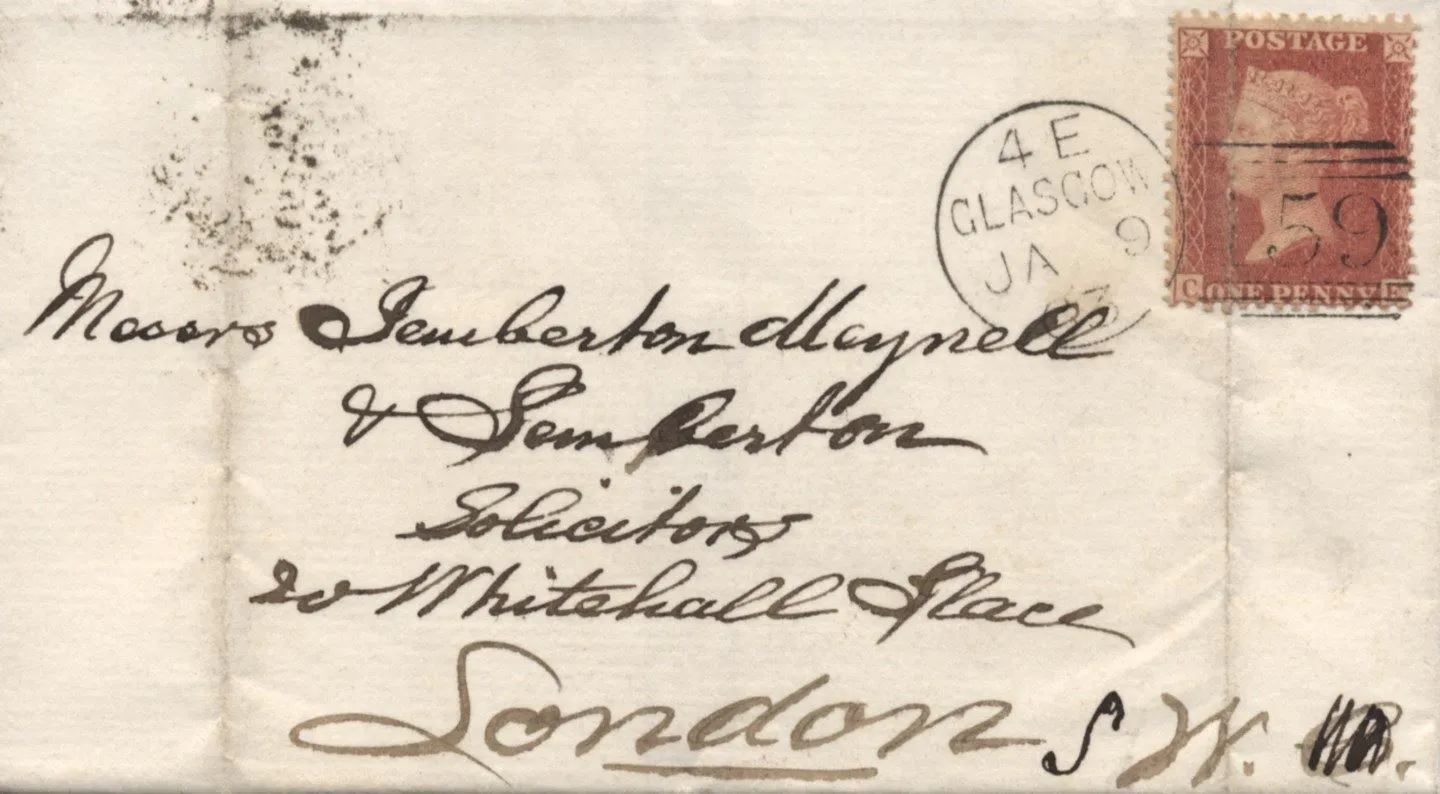 POSTAGE
4 E
GLASGOW
JA 9
159
C ONE PENNY E
Messrs Pemberton Meynell
& Pemberton
Solicitors
20 Whitehall Place
London S W.